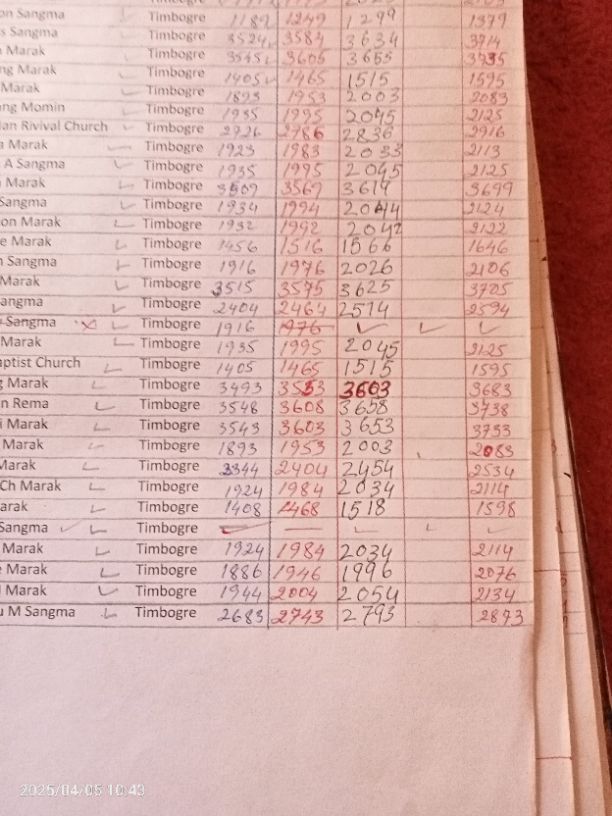 on Sangma Timbogre 1189 1249 1299 1379
s Sangma Timbogre 3524 3584 3634 3714
Marak Timbogre 3545 3605 3655 3735
ng Marak Timbogre 1405 1465 1515 1595
Marak Timbogre 1893 1953 2003 2083
ang Momin Timbogre 1935 1995 2045 2125
ian Rivival Church Timbogre 2726 2786 2836 2916
a Marak Timbogre 1923 1983 2033 2113
A Sangma Timbogre 1935 1995 2045 2125
Marak Timbogre 3509 3569 3619 3699
Sangma Timbogre 1934 1994 2044 2124
on Marak Timbogre 1932 1992 2042 2122
e Marak Timbogre 1456 1516 1566 1646
n Sangma Timbogre 1916 1976 2026 2106
Marak Timbogre 3515 3575 3625 3705
angma Timbogre 2404 2464 2514 2594
Sangma Timbogre 1916 1976
Marak Timbogre 1935 1995 2045 2125
aptist Church Timbogre 1405 1465 1515 1595
g Marak Timbogre 3493 3553 3603 3683
n Rema Timbogre 3548 3608 3658 3738
i Marak Timbogre 3543 3603 3653 3733
Marak Timbogre 1893 1953 2003 2083
Marak Timbogre 2344 2404 2454 2534
Ch Marak Timbogre 1924 1984 2034 2114
arak Timbogre 1408 1468 1518 1598
Sangma Timbogre
Marak Timbogre 1924 1984 2034 2114
e Marak Timbogre 1886 1946 1996 2076
Marak Timbogre 1944 2004 2054 2134
u M Sangma Timbogre 2683 2743 2793 2873
2025/04/05 10:43